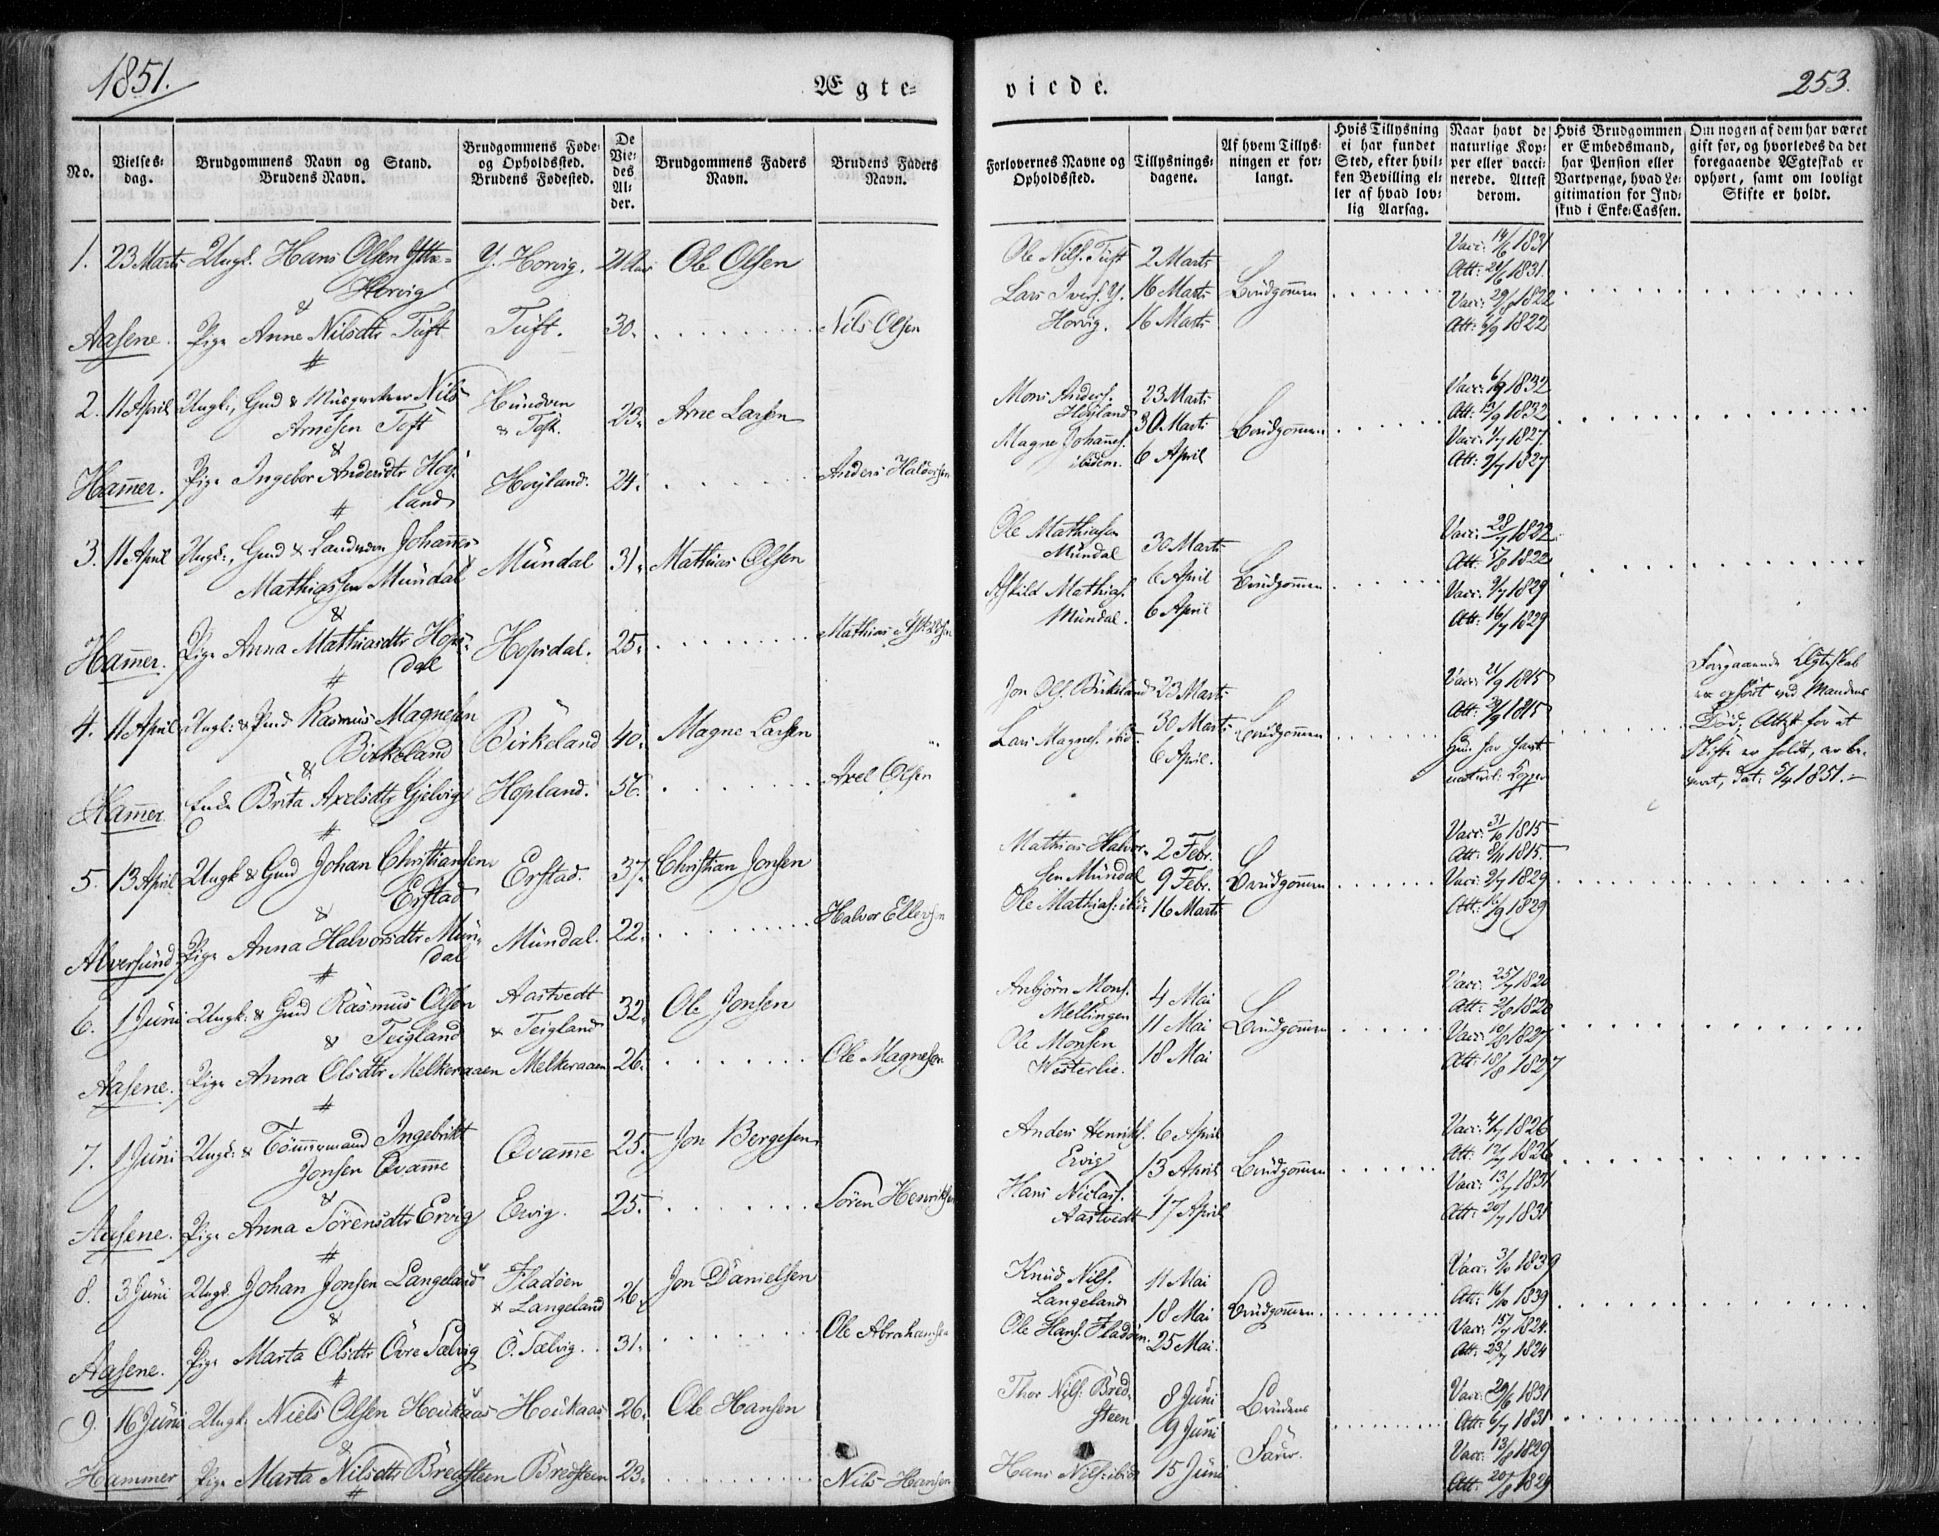 1851.
Ægte-
viede.
253.
No.
Vielses-
dag.
Brudgommens Navn og Stand.
Brudens Navn.
Brudgommens Føde-
og Opholdssted.
Brudens Fødested.
De
Vie-
des
Al-
der.
Brudgommens Faders
Navn.
Brudens Faders
Navn.
Forlovernes Navne og
Opholdssted.
Tillysnings-
dagene.
Af hvem Tillys-
ningen er for-
langt.
Hvis Tillysning
ei har fundet
Sted, efter hvil-
ken Bevilling el-
ler af hvad lov-
lig Aarsag.
Naar havt de
naturlige Kop-
per eller vacci-
nerede. Attest
derom.
Hvis Brudgommen
er Embedsmand,
har Pension eller
Vartpenge, hvad Le-
gitimation for Ind-
skud i Enke-Cassen.
Om nogen af dem har været
gift før, og hvorledes da det
foregaaende Ægteskab er
ophørt, samt om lovligt
Skifte er holdt.
1. 23 Marts Ungk. Hans Olsen Yttre- Y. Horvig. Ole Olsen
Horvig
&
Aasene. Pige Anne Nilsdtr Tuft Tuft. 30. Nils Olsen
Ole Nils. Tuft 2 Marts Vacc: 14/6 1831
Lars Ivers. Y. 16 Marts Brudgommen Att: 21/6 1831.
Horvig. 16 Marts Vacc: 29/8 1822
Att: 6/9 1822
2. 11 April Ungk:, Gmd & Nils Hundven 23. Arne Larsen
Arnesen Toft & Toft.
&
Hammer. Pige Ingebor Andersdtr Høy- Høyland. 24. Anders Haldorsen
land
Mons Anders. 23 Marts Vacc: 6/9 1832
Høyland 30 Marts Brudgommen Att: 13/9 1832
Magne Johannes. Vacc: 1/7 1827
ibidem. 6 April Att: 9/7 1827
3. 11 April Ungk:, Gmd & Johannes Mundal 31. Mathias Olsen
Mathiassen Mundal
&
Hammer. Pige Anna Mathiasdtr Hops- Hopsdal. 25. Mathias
dal
Ole Mathiasen 30 Marts Vacc: 28/7 1822
Mundal 6 April Brudgommen Att: 5/8 1822
Mathias. Vacc: 9/7 1829
Mundal. 6 April Att: 16/7 1829
4. 11 April Ungk: & Rasmus Magnesen Birkeland 40. Magne Larsen
Birkeland
&
Hammer. Enke Brita Axelsdtr Gjelvig Hopland. 56. Axel Olsen
Jon Ols. Birkeland 23 Marts Vacc: 21/9 1815
Lars Magnes. ibid. 30 Marts Brudgommen Att: 29/9 1815
6 April. Hun har havt
naturl: Kopper
Forgaaende Ægteskab
er ophørt ved Mandens
Død; Attest for at
Skifte er holdt, er be-
, dat: 5/4 1851.
5. 13 April Ungk & Gmd Johan Christiansen Erstad. 37. Christian Jonsen
Erstad
&
Alversund. Pige Anna Halvorsdtr Mun- Mundal. 22. Halvor Ellevsen
dal
Mathias Halvor- 2 Febr. Vacc: 31/10 1815
sen Mundal 9 Febr. Brudgommen Att: 8/11 1815.
Ole Mathias: ibid: 16 Marts Vacc: 2/7 1829
Att: 16/9 1829
6. 1 Juni Ungk: & Gmd Rasmus Olsen Aastvedt 32. Ole Jonsen
& Teigland & Teigland
Aasene. Pige Anna Olsdtr Melkeraaen Melkeraaen 26. Ole Magnesen
Anbjørn Mons. 4 Mai Vacc: 25/7 1820
Mellingen 11 Mai Brudgommen Att: 2/8 1820
Ole Monsen 18 Mai Vacc: 10/8 1827
Westerlie. Att: 18/8 1827
7. 1 Juni Ungk: & Tømmermand Ingebrikt Qvamme 25. Jon Bergesen
Jonsen Qvamme
&
Aasene. Pige Anna Sørensdtr Ervig Ervig. 25. Søren Henriksen
Anders Henriks. 6 April Vacc: 4/7 1826
Ervig 13 April Brudgommen Att: 12/7 1826
Hans Niclas. 17 April Vacc: 13/7 1831
Aastvedt Att: 20/7 1831
8. 3 Juni Ungk. Johan Jonsen Langeland Fladøen 26. Jon Danielsen
& & Langeland
Aasene. Pige Marta Olsdtr Øvre Sælvig Ö. Sælvig. 31. Ole Abrahamsen
Knud Nils. 11 Mai Vacc: 3/10 1839
Langeland 18 Mai Brudgommen. Att: 16/10 1839
Ole Hans. Fladøen. 25 Mai. Vacc: 15/7 1824.
Att: 23/7 1824
9. 16 Juni Ungk. Niels Olsen Houkaas Houkaas 26. Ole Hansen
&
Hammer Pige Marta Nilsdtr Bredsteen Bredsteen 23. Nils Hansen
Thor Nils: Bred- 8 Juni Brudens Vacc: 29/6 1831
steen 9 Juni Att: 6/7 1831
Hans Nils: ibid 15 Juni Vacc: 13/8 1829
Att: 20/8 1829